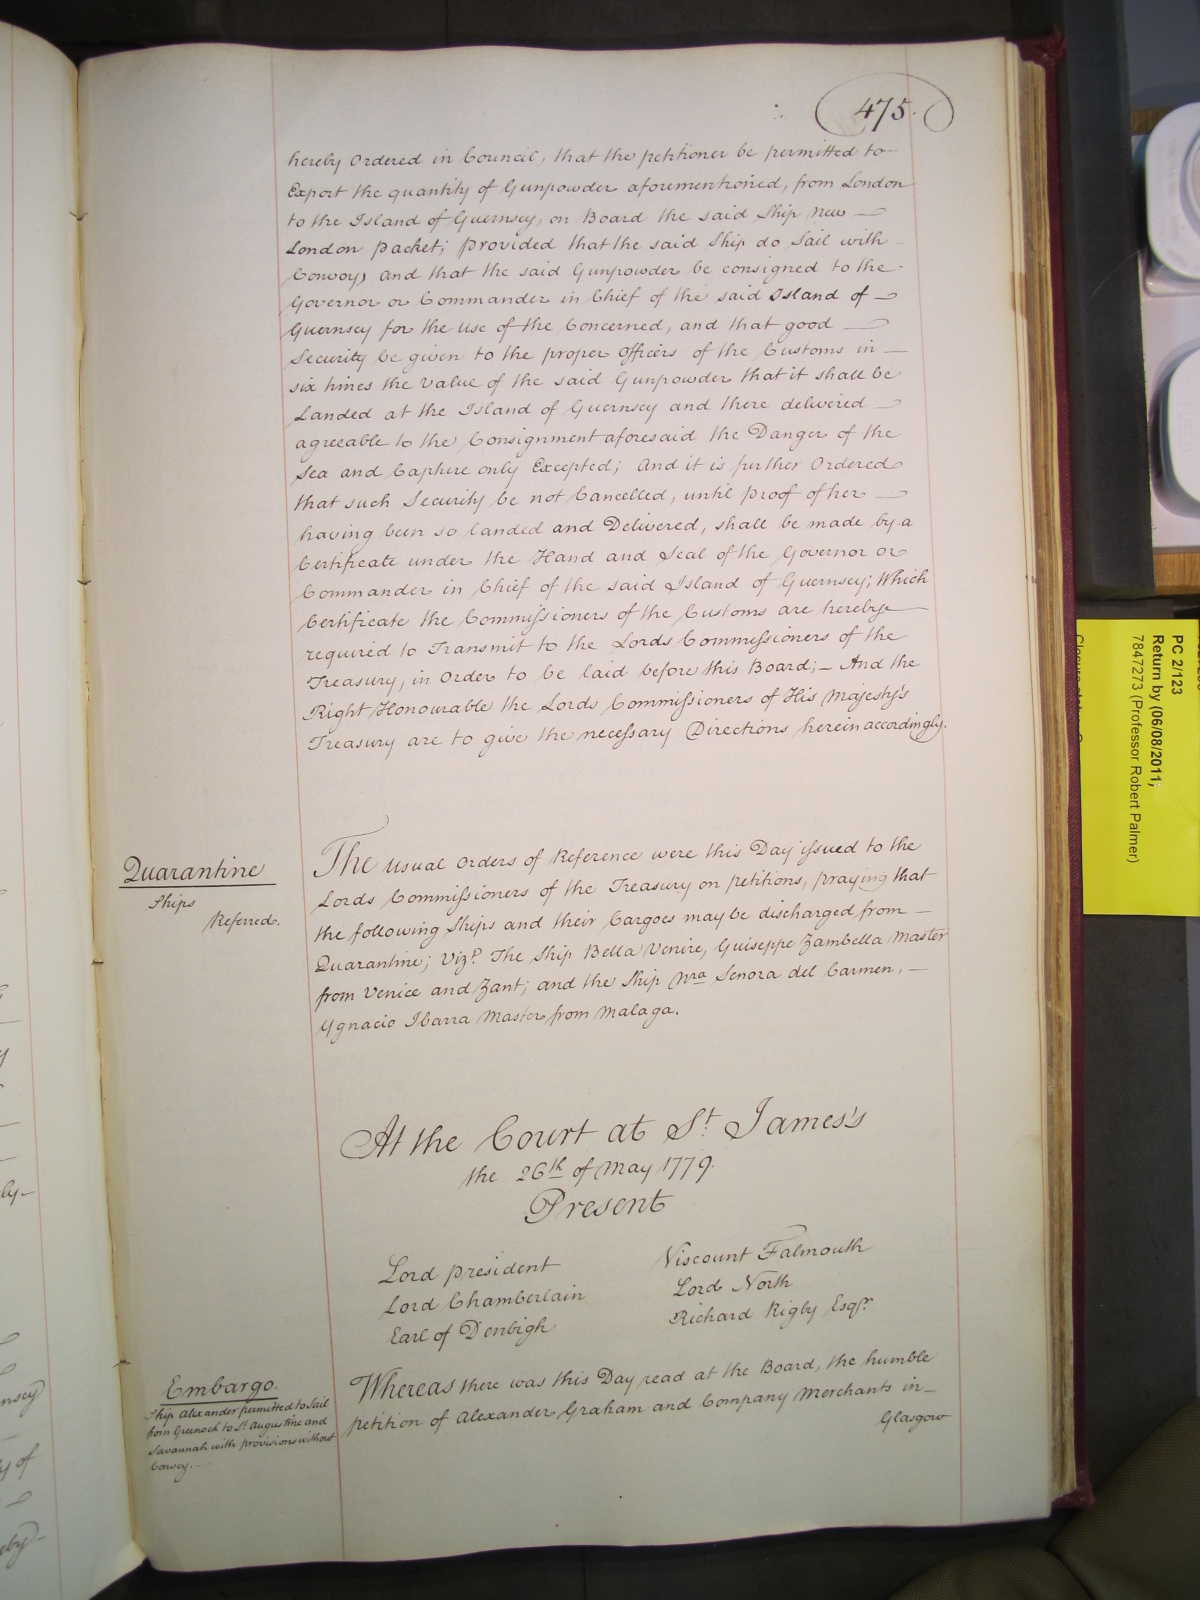 475.
hereby Ordered in Council, that the petitioner be permitted to
Export the quantity of Gunpowder aforementioned, from London
to the Island of Guernsey, on Board the said Ship New
London Packet; provided that the said Ship do Sail with
Convoy, and that the said Gunpowder be consigned to the
Governor or Commander in Chief of the said Island of
Guernsey for the use of the Concerned, and that good
Security be given to the proper Officers of the Customs in
six times the value of the said Gunpowder that it shall be
Landed at the Island of Guernsey and there delivered
agreeable to the Consignment aforesaid the Danger of the
Sea and Capture only Excepted; And it is further Ordered
that such Security be not Cancelled, until proof of her
having been so landed and Delivered, shall be made by a
Certificate under the Hand and Seal of the Governor or
Commander in Chief of the said Island of Guernsey; Which
Certificate the Commissioners of the Customs are hereby
required to Transmit to the Lords Commissioners of the
Treasury, in Order to be laid before this Board;– And the
Right Honourable the Lords Commissioners of His Majesty's
Treasury are to give the necessary Directions herein accordingly.
Quarantine
Ships
Referred.
The usual Orders of Reference were this Day issued to the
Lords Commissioners of the Treasury on petitions, praying that
the following Ships and their Cargoes may be discharged from
Quarantine; Vizt. The Ship Bella Venire, Guiseppe Zambella Master
from Venice and Zant; and the Ship Nra Senora del Carmen,
Ygnacio Ibarra Master from Malaga.
At the Court at St. James's
the 26th of May 1779.
Present
Lord President
Lord Chamberlain
Earl of Denbigh
Viscount Falmouth
Lord North
Richard Rigby Esqr.
Embargo.
Ship Alexander permitted to Sail
from Greenock to St. Augustine and
Savannah with provisions without
Convoy.
Whereas there was this Day read at the Board, the humble
petition of Alexander Graham and Company Merchants in
Glasgow
PC 2/123
Return by (06/08/2011;
7847273 (Professor Robert Palmer)